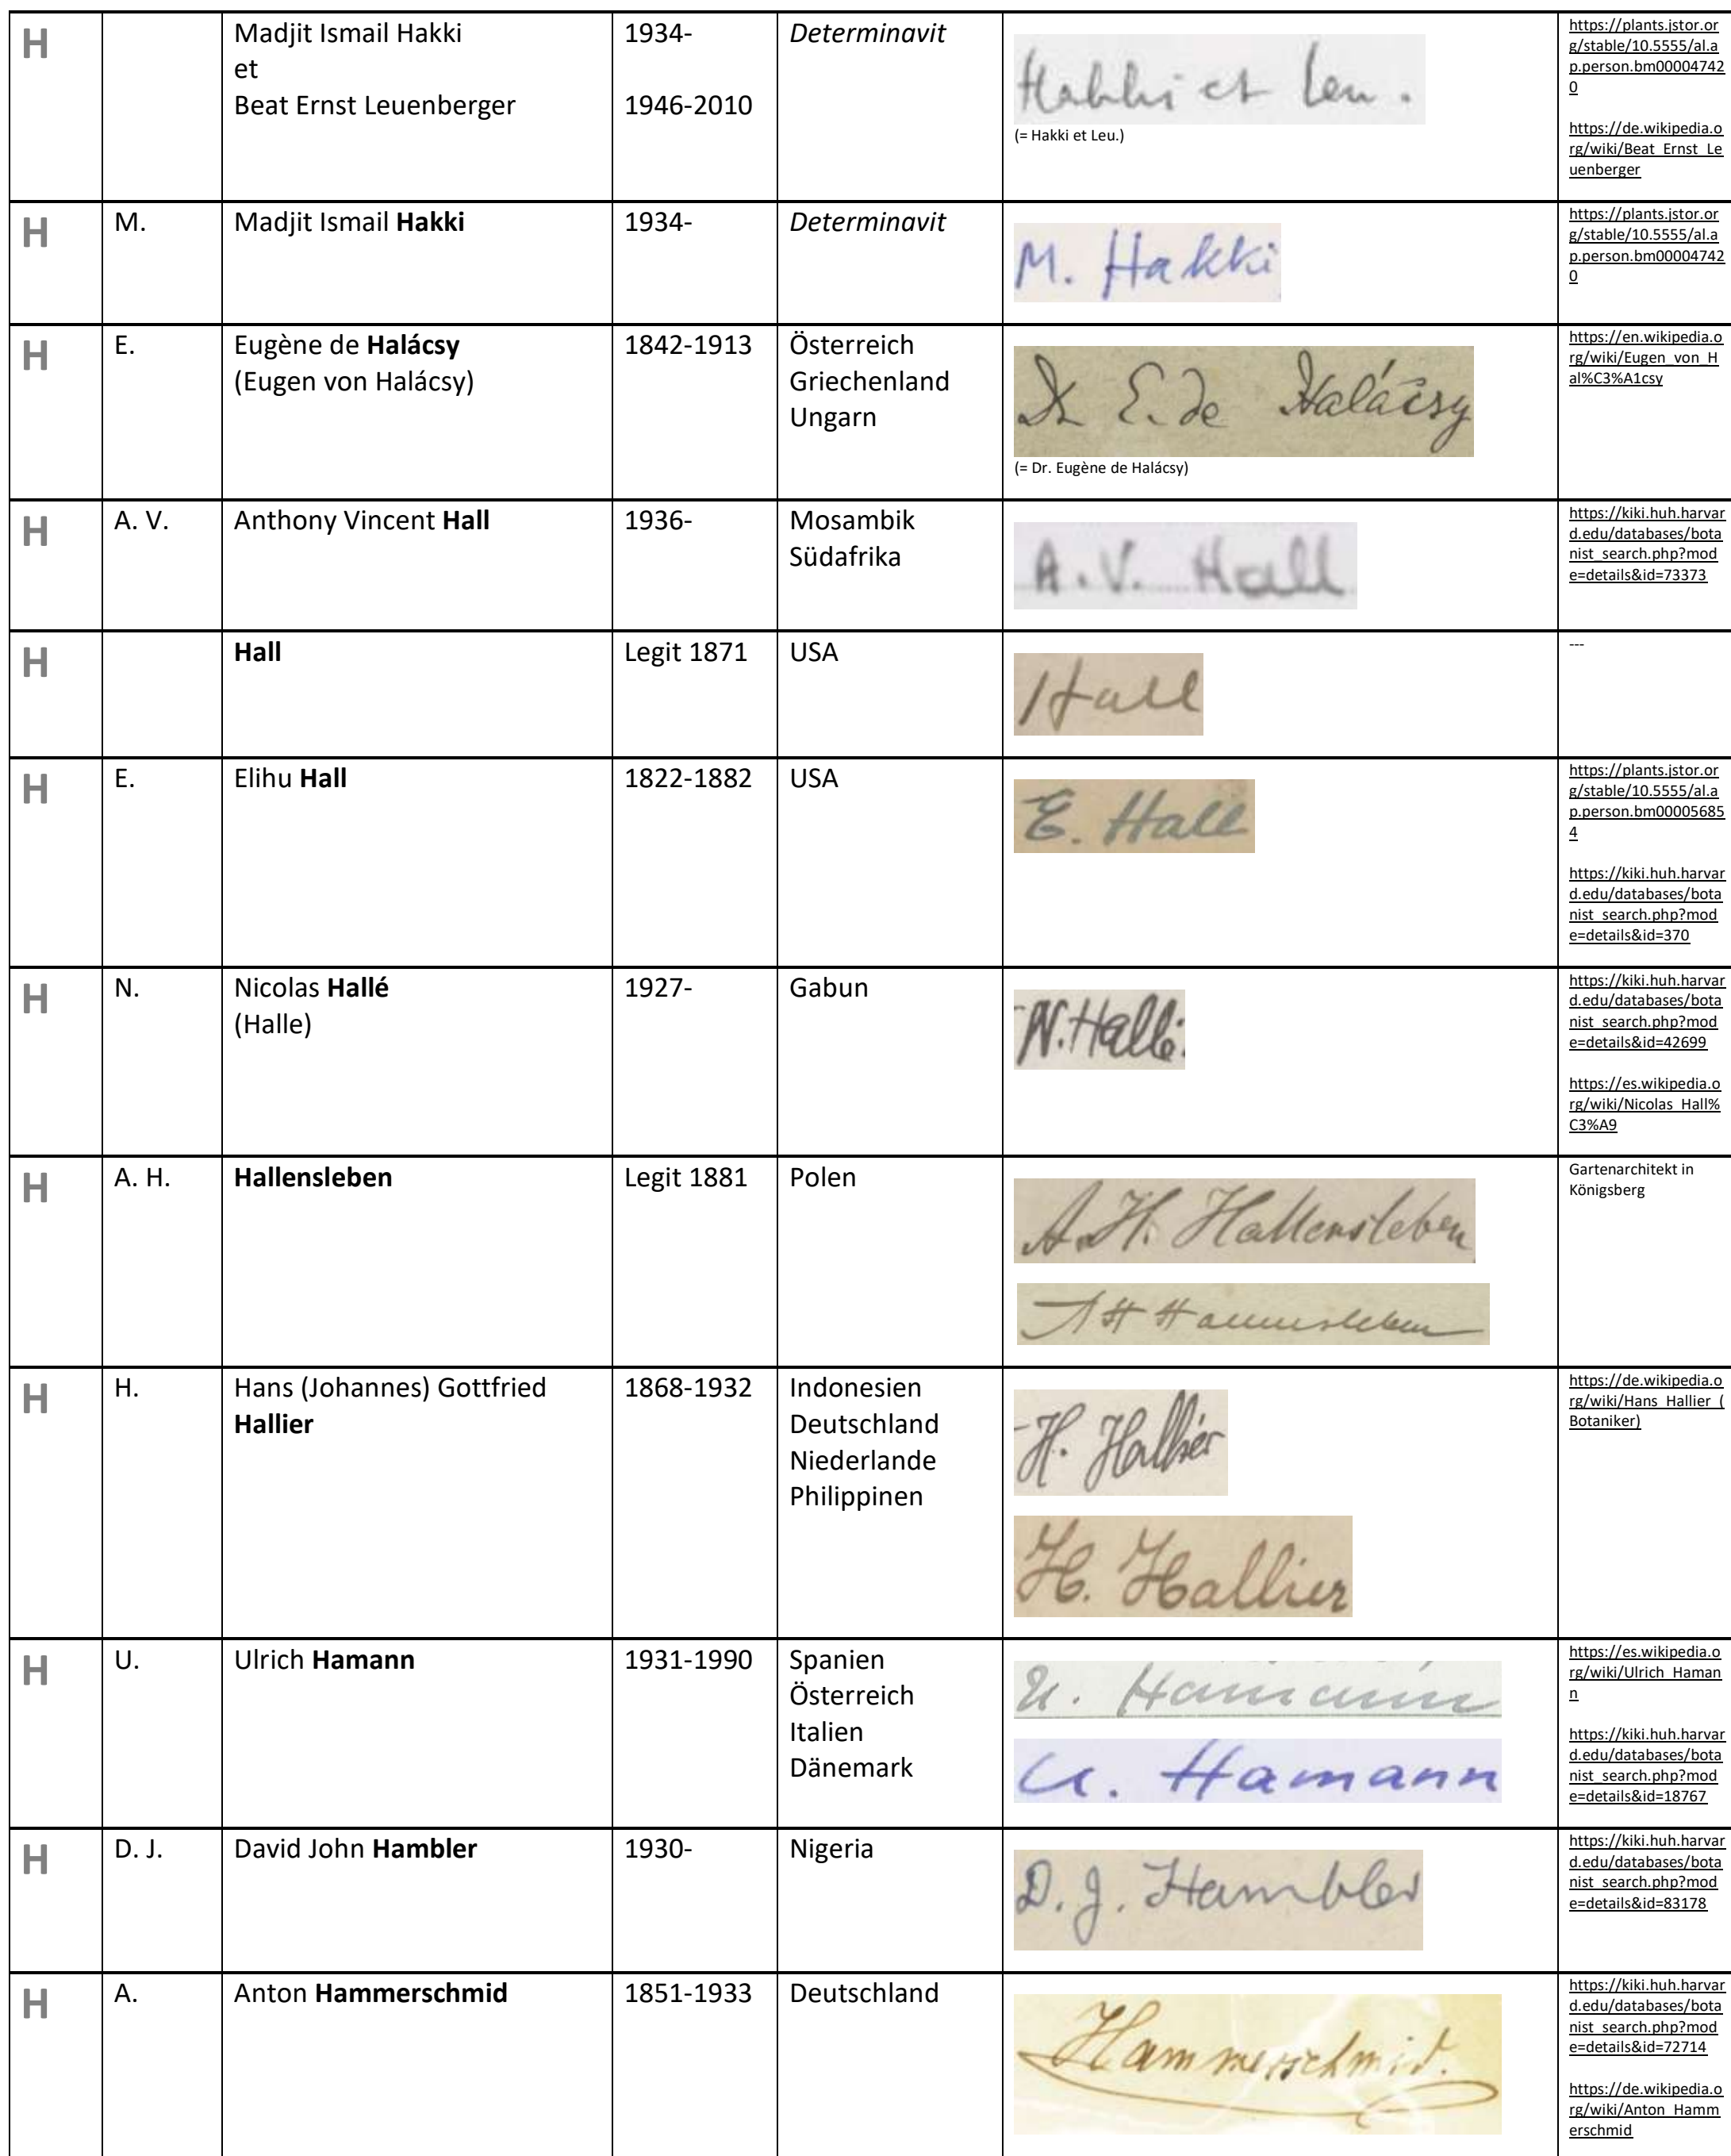 H
Madjit Ismail Hakki
et
Beat Ernst Leuenberger
1934-
1946-2010
Determinavit
Hakki et Leu.
(= Hakki et Leu.)
https://plants.jstor.or
g/stable/10.5555/al.a
p.person.bm00004742
0
https://de.wikipedia.o
rg/wiki/Beat_Ernst_Le
uenberger
H
M.
Madjit Ismail Hakki
1934-
Determinavit
M. Hakki
https://plants.jstor.or
g/stable/10.5555/al.a
p.person.bm00004742
0
H
E.
Eugène de Halácsy
(Eugen von Halácsy)
1842-1913
Österreich
Griechenland
Ungarn
Dr E. de Halácsy
(= Dr. Eugène de Halácsy)
https://en.wikipedia.o
rg/wiki/Eugen_von_H
al%C3%A1csy
H
A. V.
Anthony Vincent Hall
1936-
Mosambik
Südafrika
A. V. Hall
https://kiki.huh.harvar
d.edu/databases/bota
nist_search.php?mod
e=details&id=73373
H
Hall
Legit 1871
USA
Hall
---
H
E.
Elihu Hall
1822-1882
USA
E. Hall
https://plants.jstor.or
g/stable/10.5555/al.a
p.person.bm00005685
4
https://kiki.huh.harvar
d.edu/databases/bota
nist_search.php?mod
e=details&id=370
H
N.
Nicolas Hallé
(Halle)
1927-
Gabun
N. Hallé
https://kiki.huh.harvar
d.edu/databases/bota
nist_search.php?mod
e=details&id=42699
https://es.wikipedia.o
rg/wiki/Nicolas_Hall%
C3%A9
H
A. H.
Hallensleben
Legit 1881
Polen
A. H. Hallensleben
A H Hallensleben
Gartenarchitekt in
Königsberg
H
H.
Hans (Johannes) Gottfried
Hallier
1868-1932
Indonesien
Deutschland
Niederlande
Philippinen
H. Hallier
H. Hallier
https://de.wikipedia.o
rg/wiki/Hans_Hallier_(
Botaniker)
H
U.
Ulrich Hamann
1931-1990
Spanien
Österreich
Italien
Dänemark
U. Hamann
U. Hamann
https://es.wikipedia.o
rg/wiki/Ulrich_Haman
n
https://kiki.huh.harvar
d.edu/databases/bota
nist_search.php?mod
e=details&id=18767
H
D. J.
David John Hambler
1930-
Nigeria
D. J. Hambler
https://kiki.huh.harvar
d.edu/databases/bota
nist_search.php?mod
e=details&id=83178
H
A.
Anton Hammerschmid
1851-1933
Deutschland
Hammerschmid.
https://kiki.huh.harvar
d.edu/databases/bota
nist_search.php?mod
e=details&id=72714
https://de.wikipedia.o
rg/wiki/Anton_Hamm
erschmid